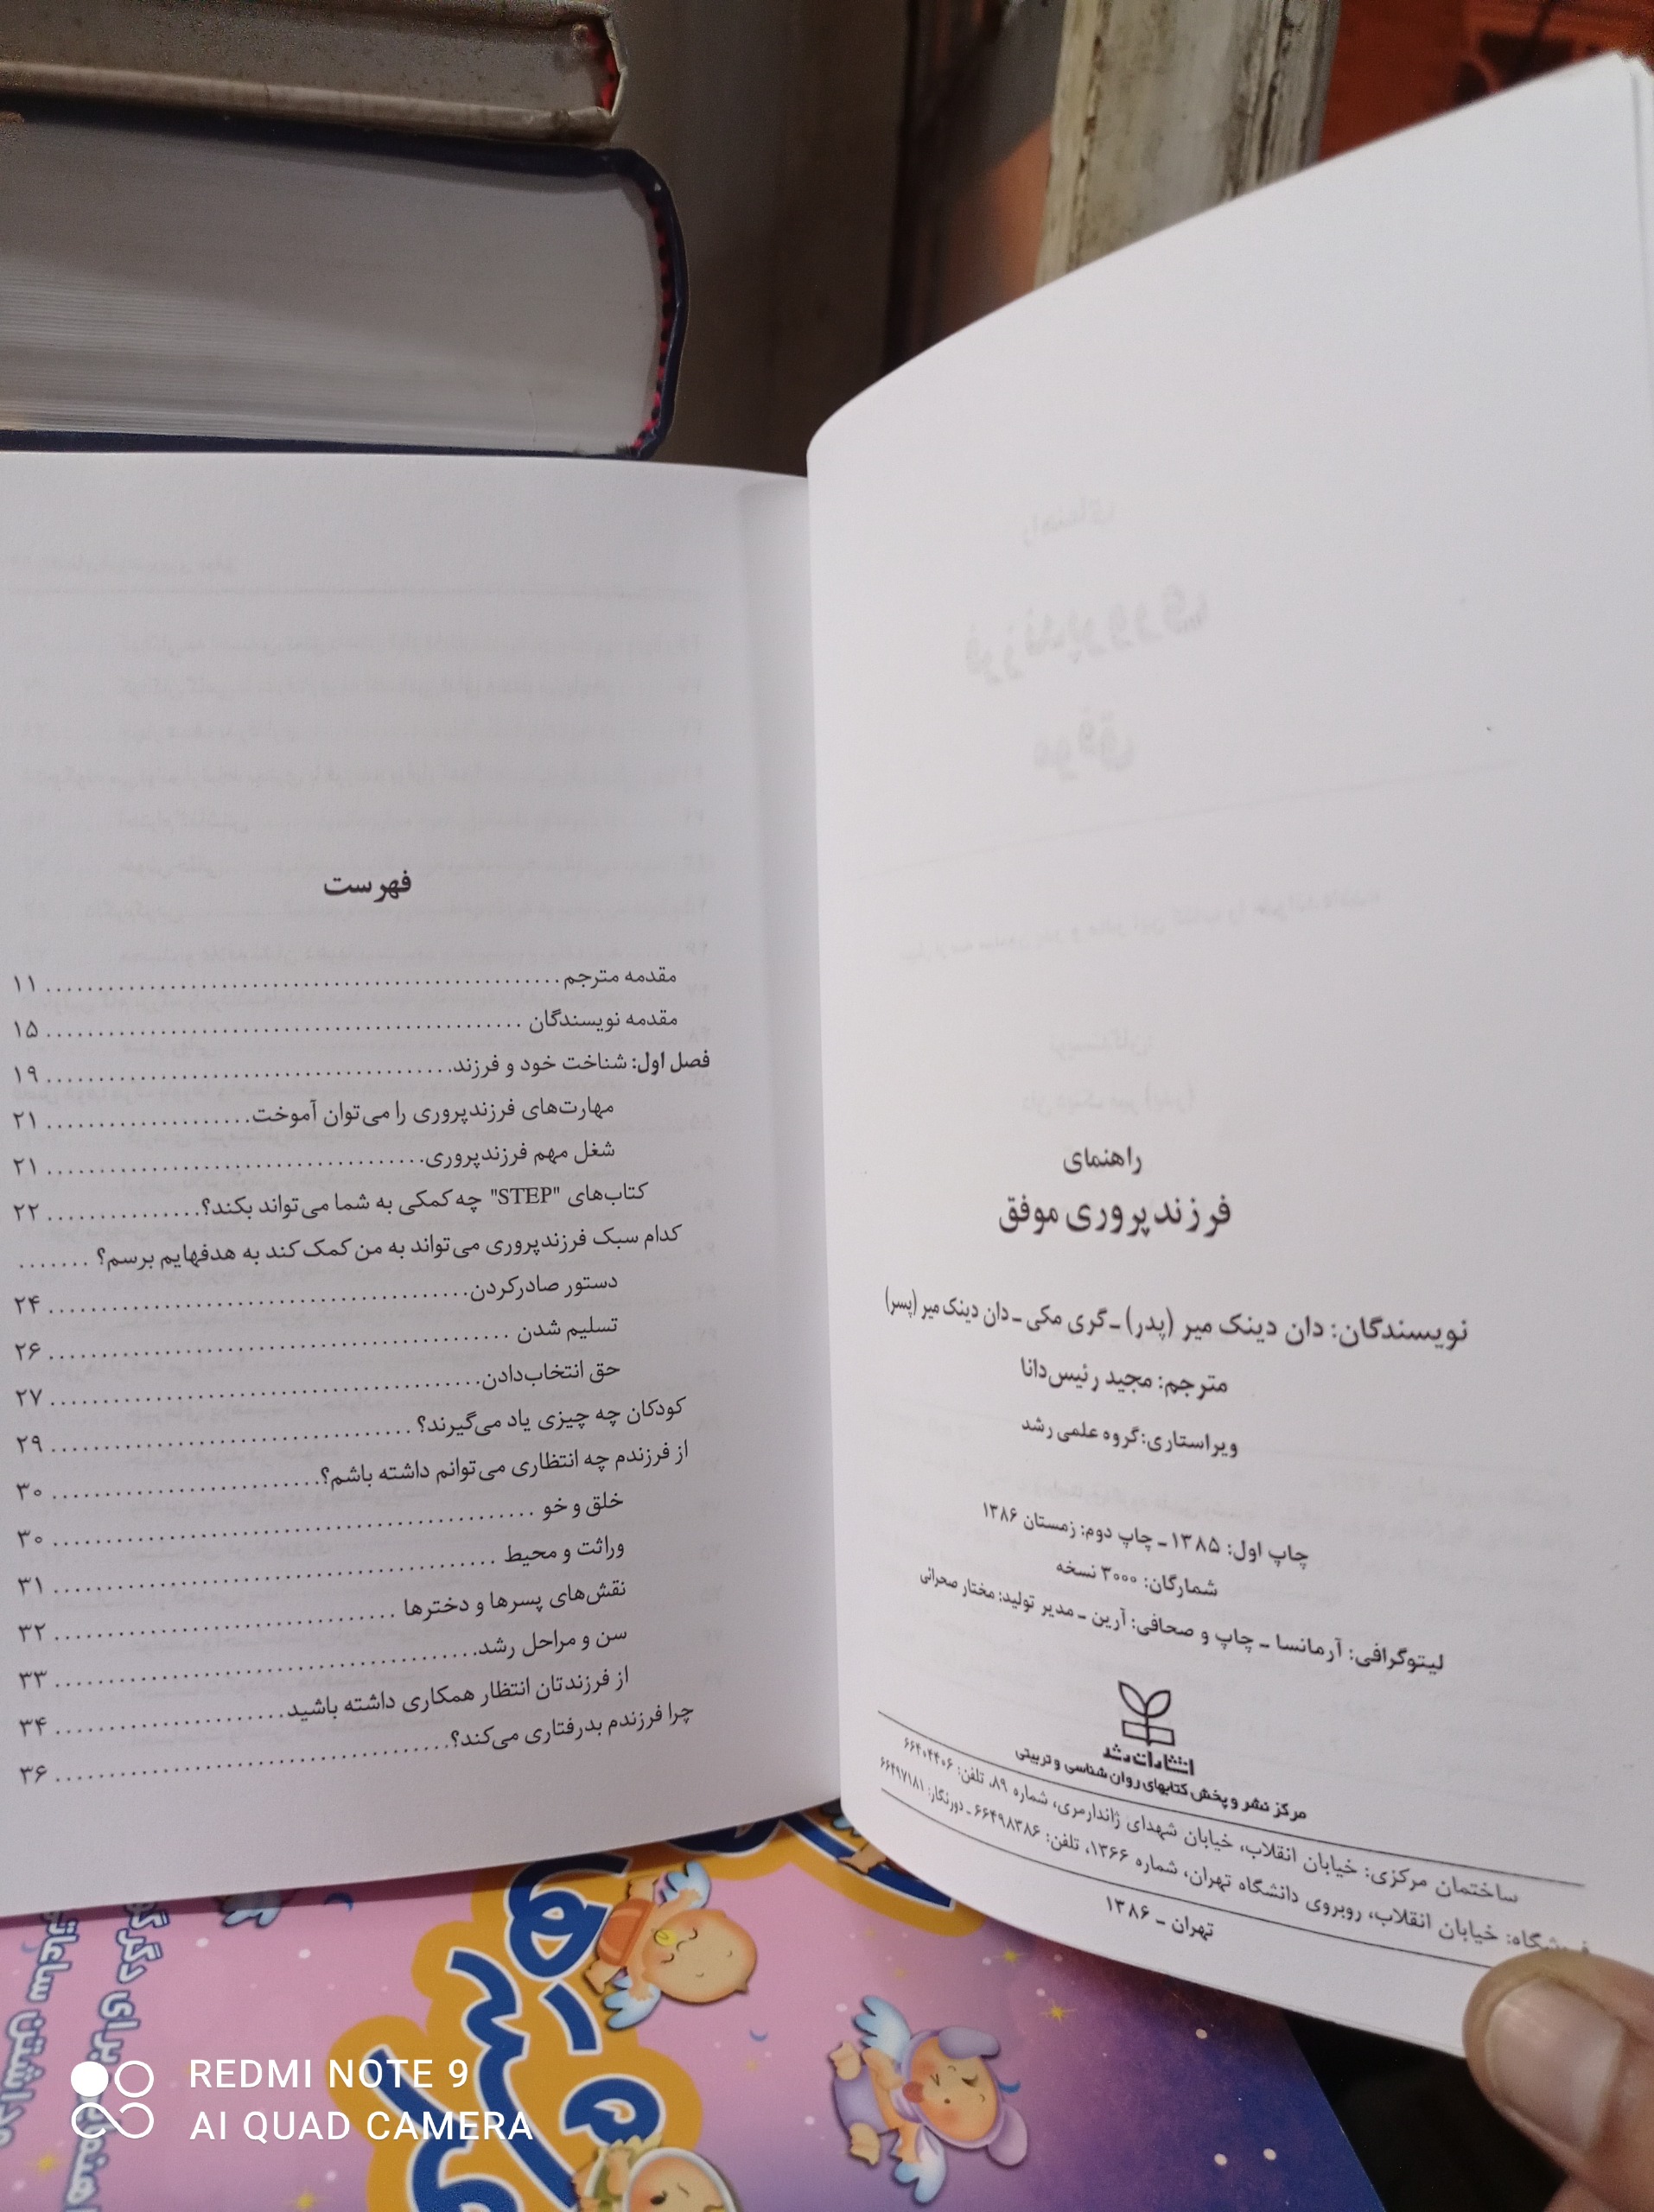 راهنمای
فرزندپروری موفق
نویسندگان: دان دینک میر (پدر) ـ گری مکی ـ دان دینک میر (پسر)
مترجم: مجید رئیس‌دانا
ویراستاری: گروه علمی رشد
چاپ اول: ۱۳۸۵ ـ چاپ دوم: زمستان ۱۳۸۶
شمارگان: ۳۰۰۰ نسخه
لیتوگرافی: آرمانسا ـ چاپ و صحافی: آرین ـ مدیر تولید: مختار صحرائی
انتشارات رشد
مرکز نشر و پخش کتابهای روان شناسی و تربیتی
ساختمان مرکزی: خیابان انقلاب، خیابان شهدای ژاندارمری، شماره ۸۹، تلفن: ۶۶۴۰۴۴۰۶
فروشگاه: خیابان انقلاب، روبروی دانشگاه تهران، شماره ۱۳۶۶، تلفن: ۶۶۴۹۸۳۸۶ ـ دورنگار: ۶۶۴۹۷۱۸۱
تهران ـ ۱۳۸۶
فهرست
مقدمه مترجم ........ ۱۱
مقدمه نویسندگان ........ ۱۵
فصل اول: شناخت خود و فرزند ........ ۱۹
مهارت‌های فرزندپروری را می‌توان آموخت ........ ۲۱
شغل مهم فرزندپروری ........ ۲۱
کتاب‌های "STEP" چه کمکی به شما می‌تواند بکند؟ ........ ۲۲
کدام سبک فرزندپروری می‌تواند به من کمک کند به هدفهایم برسم؟ .......
دستور صادرکردن ........ ۲۴
تسلیم شدن ........ ۲۶
حق انتخاب‌دادن ........ ۲۷
کودکان چه چیزی یاد می‌گیرند؟ ........ ۲۹
از فرزندم چه انتظاری می‌توانم داشته باشم؟ ........ ۳۰
خلق و خو ........ ۳۰
وراثت و محیط ........ ۳۱
نقش‌های پسرها و دخترها ........ ۳۲
سن و مراحل رشد ........ ۳۳
از فرزندتان انتظار همکاری داشته باشید ........ ۳۴
چرا فرزندم بدرفتاری می‌کند؟ ........ ۳۶
REDMI NOTE 9
AI QUAD CAMERA